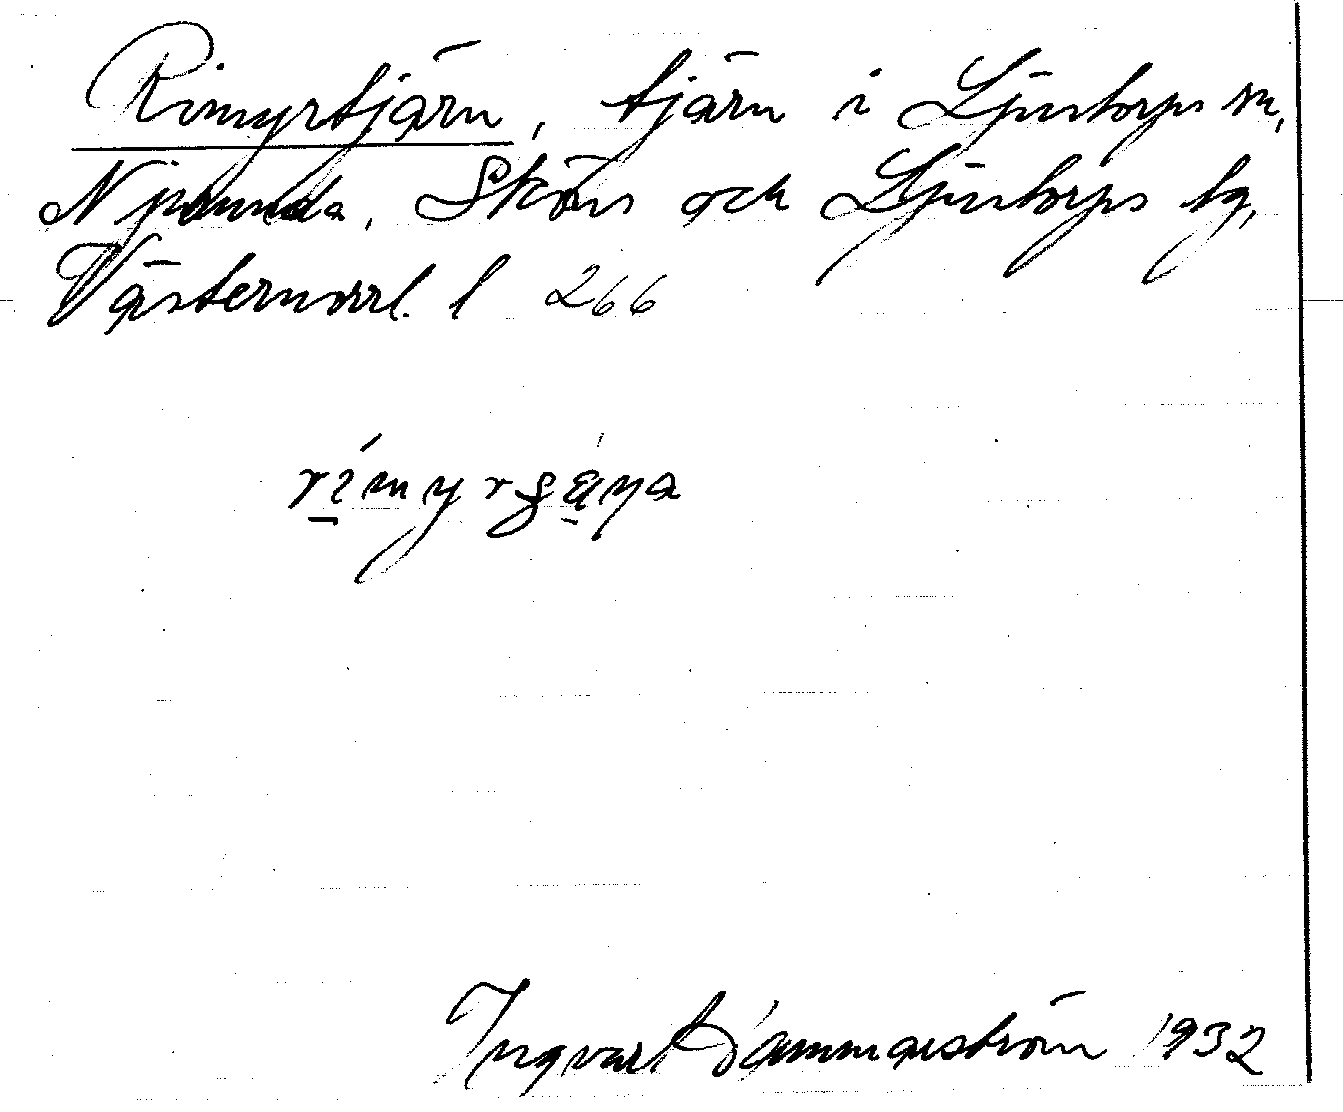 Rimyrtjärn, tjärn i Ljustorps sn,
Njurunda, Sköns och Ljustorps tg,
Västernorrl. l 266
rimyrʂäɳa
Ingvart Dammarström 1932